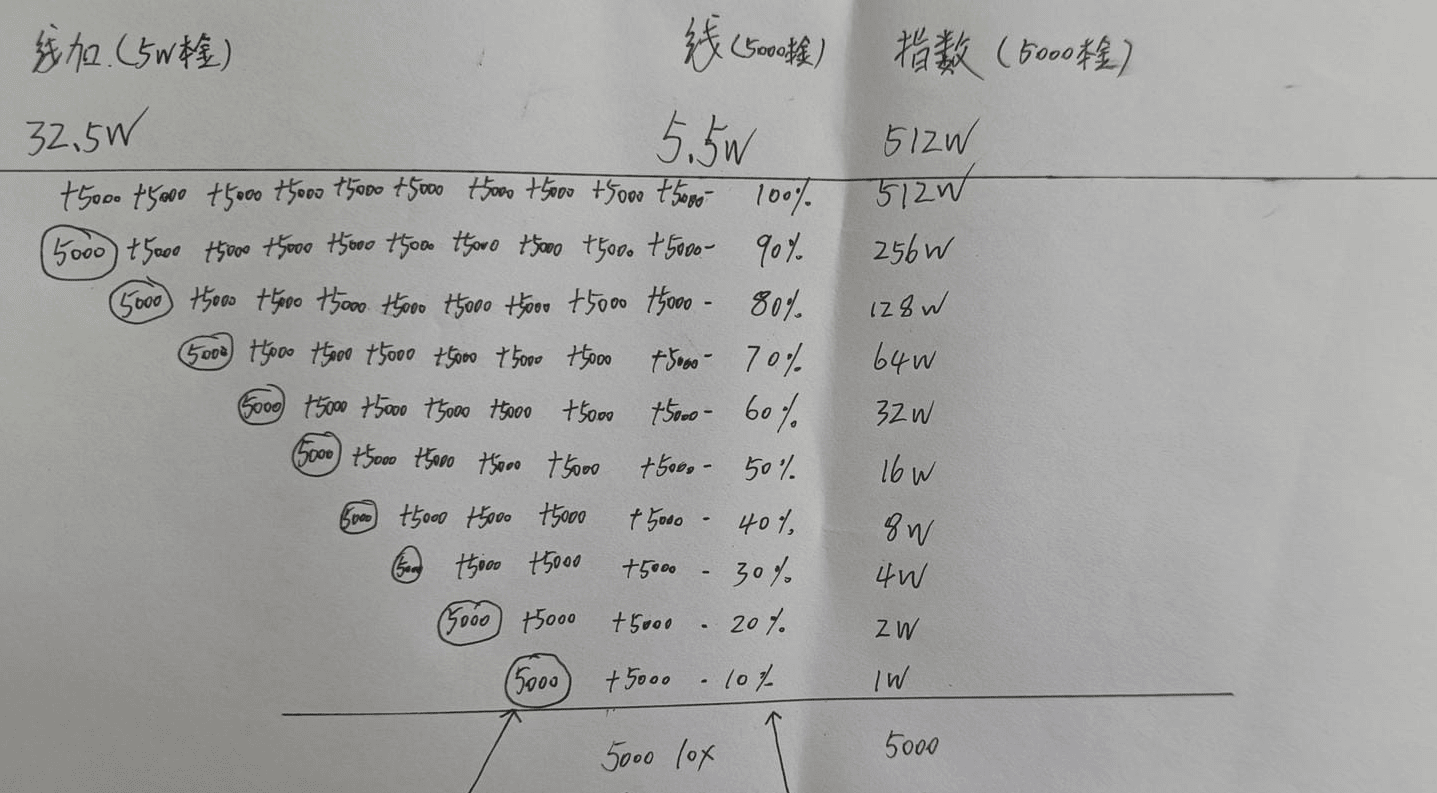 线加.(5W本金) 线(5000本金) 指数(5000本金)
32.5W 5.5W 512W
+5000 +5000 +5000 +5000 +5000 +5000 +5000 +5000 +5000 +5000- 100% 512W
5000 +5000 +5000 +5000 +5000 +5000 +5000 +5000 +5000 +5000- 90% 256W
5000 +5000 +5000 +5000 +5000 +5000 +5000 +5000 +5000 - 80% 128W
5000 +5000 +5000 +5000 +5000 +5000 +5000 +5000- 70% 64W
5000 +5000 +5000 +5000 +5000 +5000 +5000- 60% 32W
5000 +5000 +5000 +5000 +5000 +5000- 50% 16W
5000 +5000 +5000 +5000 +5000 - 40% 8W
5000 +5000 +5000 +5000 - 30% 4W
5000 +5000 +5000 - 20% 2W
5000 +5000 - 10% 1W
5000 10X 5000